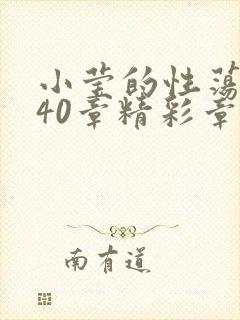 小莹的性荡
40章精彩章
南有道